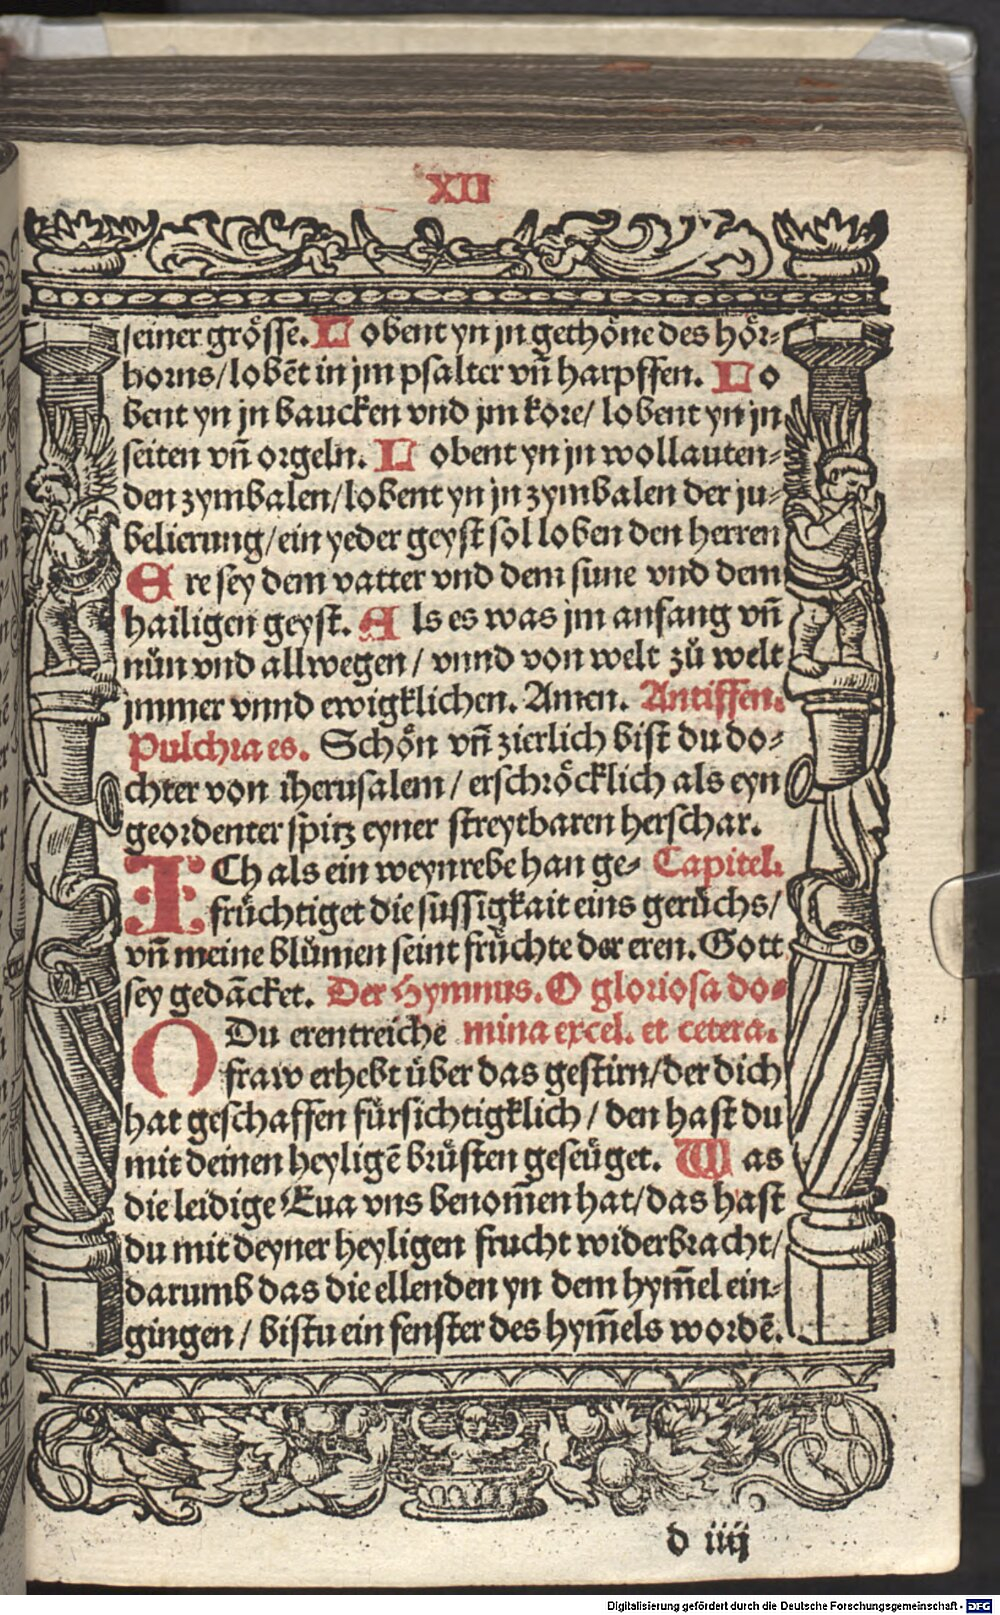 XII
seiner grösse. Lobent yn jn gethöne des hör⸗
horns/lobēt in jm psalter vn̄ harpffen. Lo
bent yn jn baucken vnd jm kore/ lobent yn jn
seiten vn̄ orgeln. Lobent yn jn wollauten⸗
den zymbalen/lobent yn jn zymbalen der ju⸗
belierung/ein yeder geyst sol loben den herren
Ere sey dem vatter vnd dem sune vnd dem
hailigen geyst. Als es was jm anfang vn̄
nůn vnd allwegen/ vnnd von welt zů welt
jmmer vnnd ewigklichen. Amen. Antiffen.
Pulchra es. Schön vn̄ zierlich bist du do⸗
chter von iherusalem/ erschröcklich als eyn
geordenter spitz eyner streytbaren herschar.
ICh als ein weynrebe han ge⸗ Capitel.
früchtiget die süssigkait eins gerüchs/
vn̄ meine blůmen seint früchte der eren. Gott
sey gedācket. Der Hymnus. O gloriosa do⸗
ODu erentreiche mina excel. et cetera.
fraw erhebt über das gestirn/der dich
hat geschaffen fürsichtigklich/ den hast du
mit deinen heyligē brüsten geseüget. Was
die leidige Eua vns benom̄en hat/das hast
du mit deyner heyligen frucht widerbracht/
darumb das die ellenden yn dem hym̄el ein⸗
gingen/ bistu ein fenster des hym̄els wordē.
d iiij
Digitalisierung gefördert durch die Deutsche Forschungsgemeinschaft - DFG